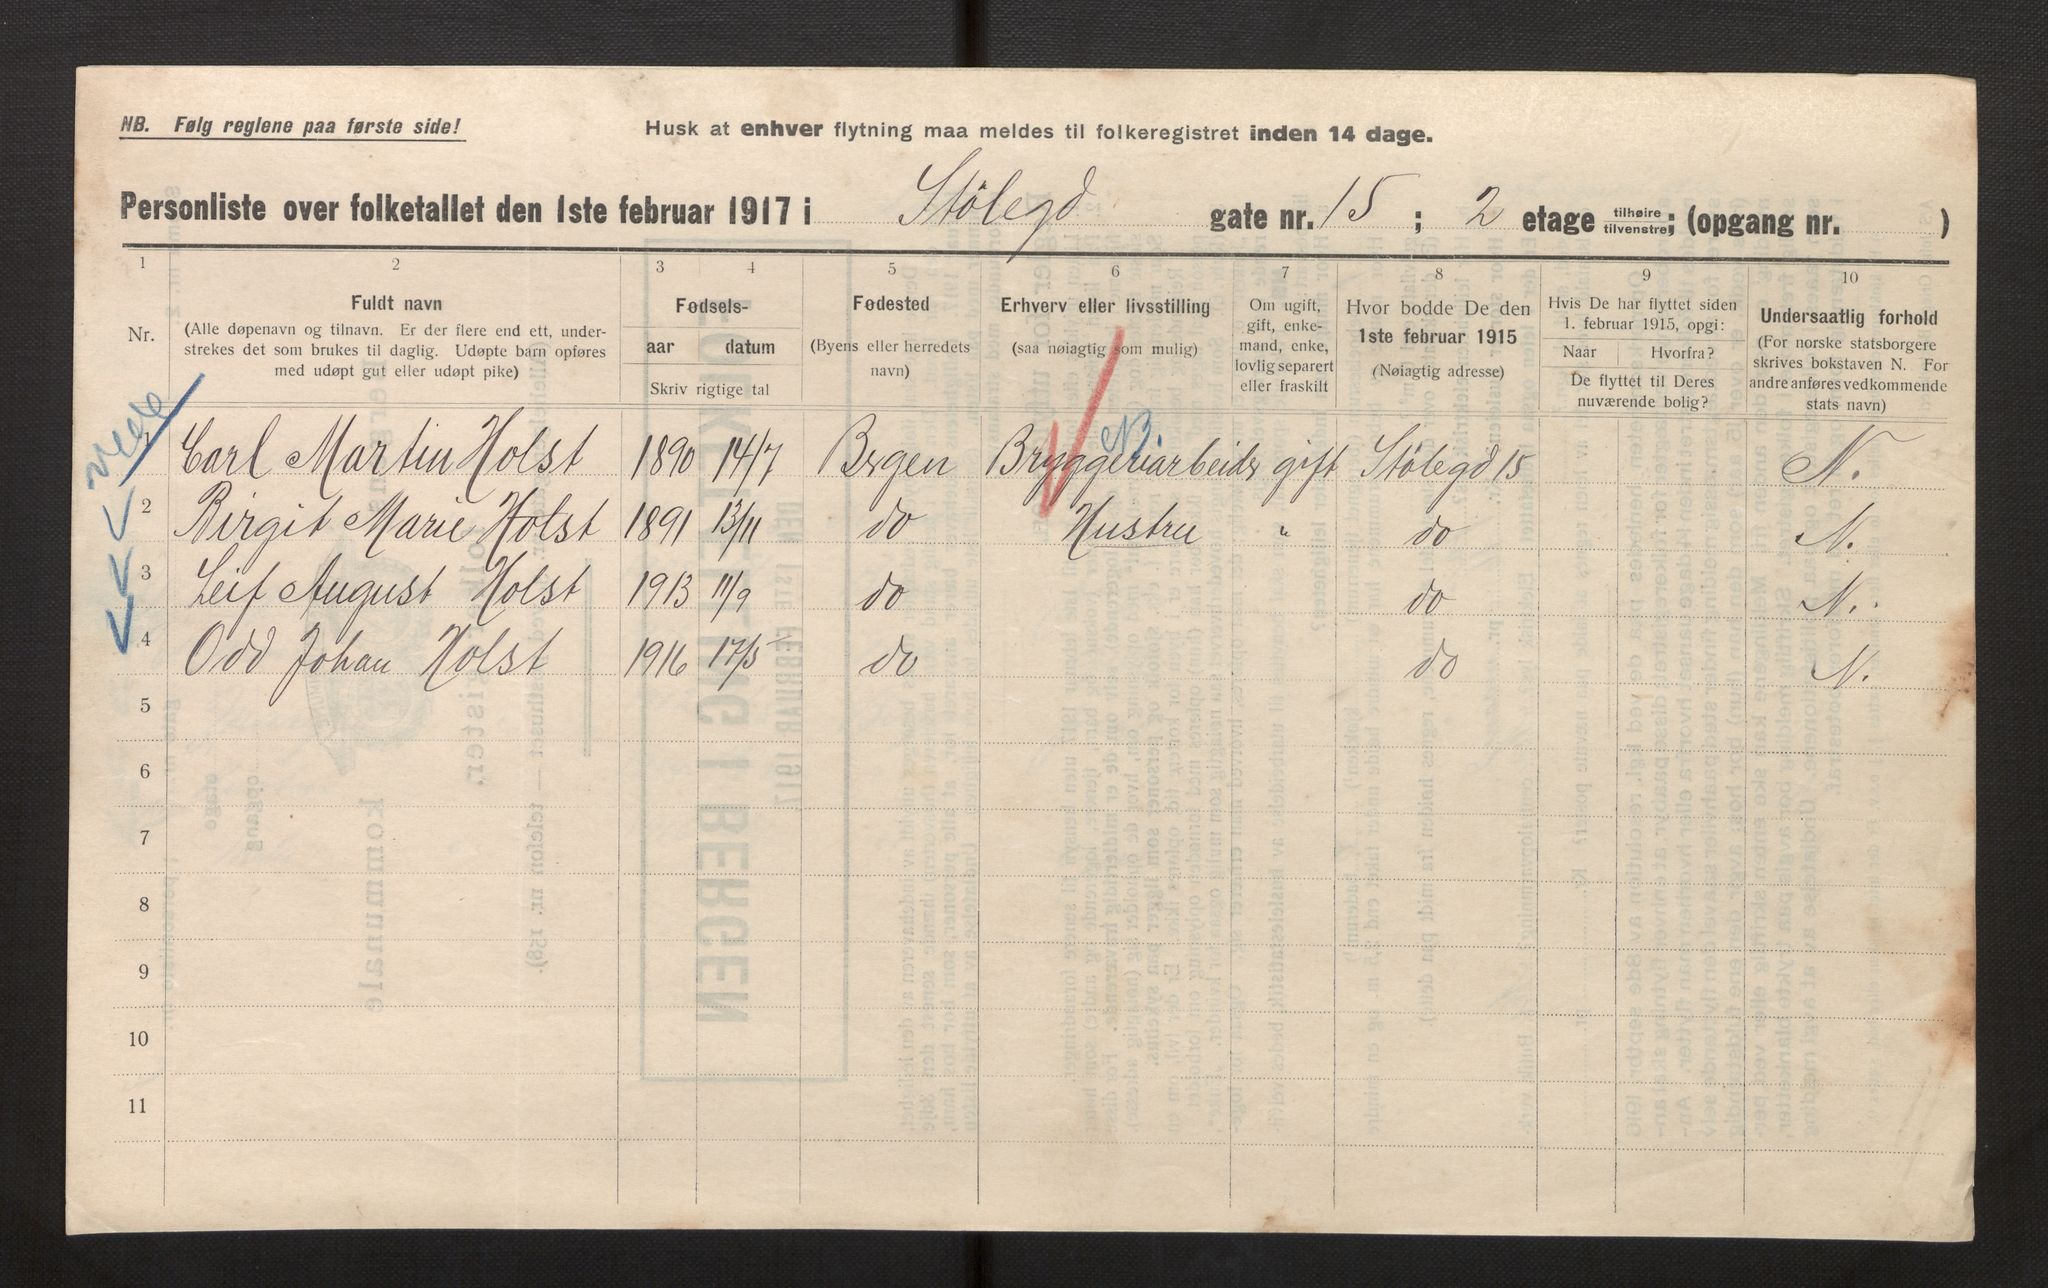 NB. Følg reglene paa første side!
Husk at enhver flytning maa meldes til folkeregistret inden 14 dage.
Personliste over folketallet den 1ste februar 1917 i Stölegd gate nr. 15 ; 2 etage tilhøire tilvenstre ; (opgang nr. )
1 2 3 4 5 6 7 8 9 10
Nr.
Fuldt navn
(Alle døpenavn og tilnavn. Er der flere end ett, under-
strekes det som brukes til daglig. Udøpte barn opføres
med udøpt gut eller udøpt pike)
Fødsels-
aar datum
Skriv rigtige tal
Fødested
(Byens eller herredets
navn)
Erhverv eller livsstilling
(saa nøiagtig som mulig)
Om ugift,
gift, enke-
mand, enke,
lovlig separert
eller fraskilt
Hvor bodde De den
1ste februar 1915
(Nøiagtig adresse)
Hvis De har flyttet siden
1. februar 1915, opgi:
Naar Hvorfra?
De flyttet til Deres
nuværende bolig?
Undersaatlig forhold
(For norske statsborgere
skrives bokstaven N. For
andre anføres vedkommende
stats navn)
1 Carl Martin Holst 1890 14/7 Bergen Bryggeriarbeider gift Stölegd 15 N.
2 Birgit Marie Holst 1891 13/11 do Hustru " do N.
3 Leif August Holst 1913 11/9 do do N.
4 Odd Johan Holst 1916 17/5 do do N.
5
6
7
8
9
10
11